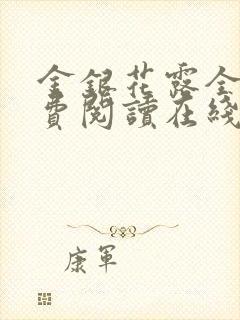 金銀花露全
費閱讀在綫
康軍